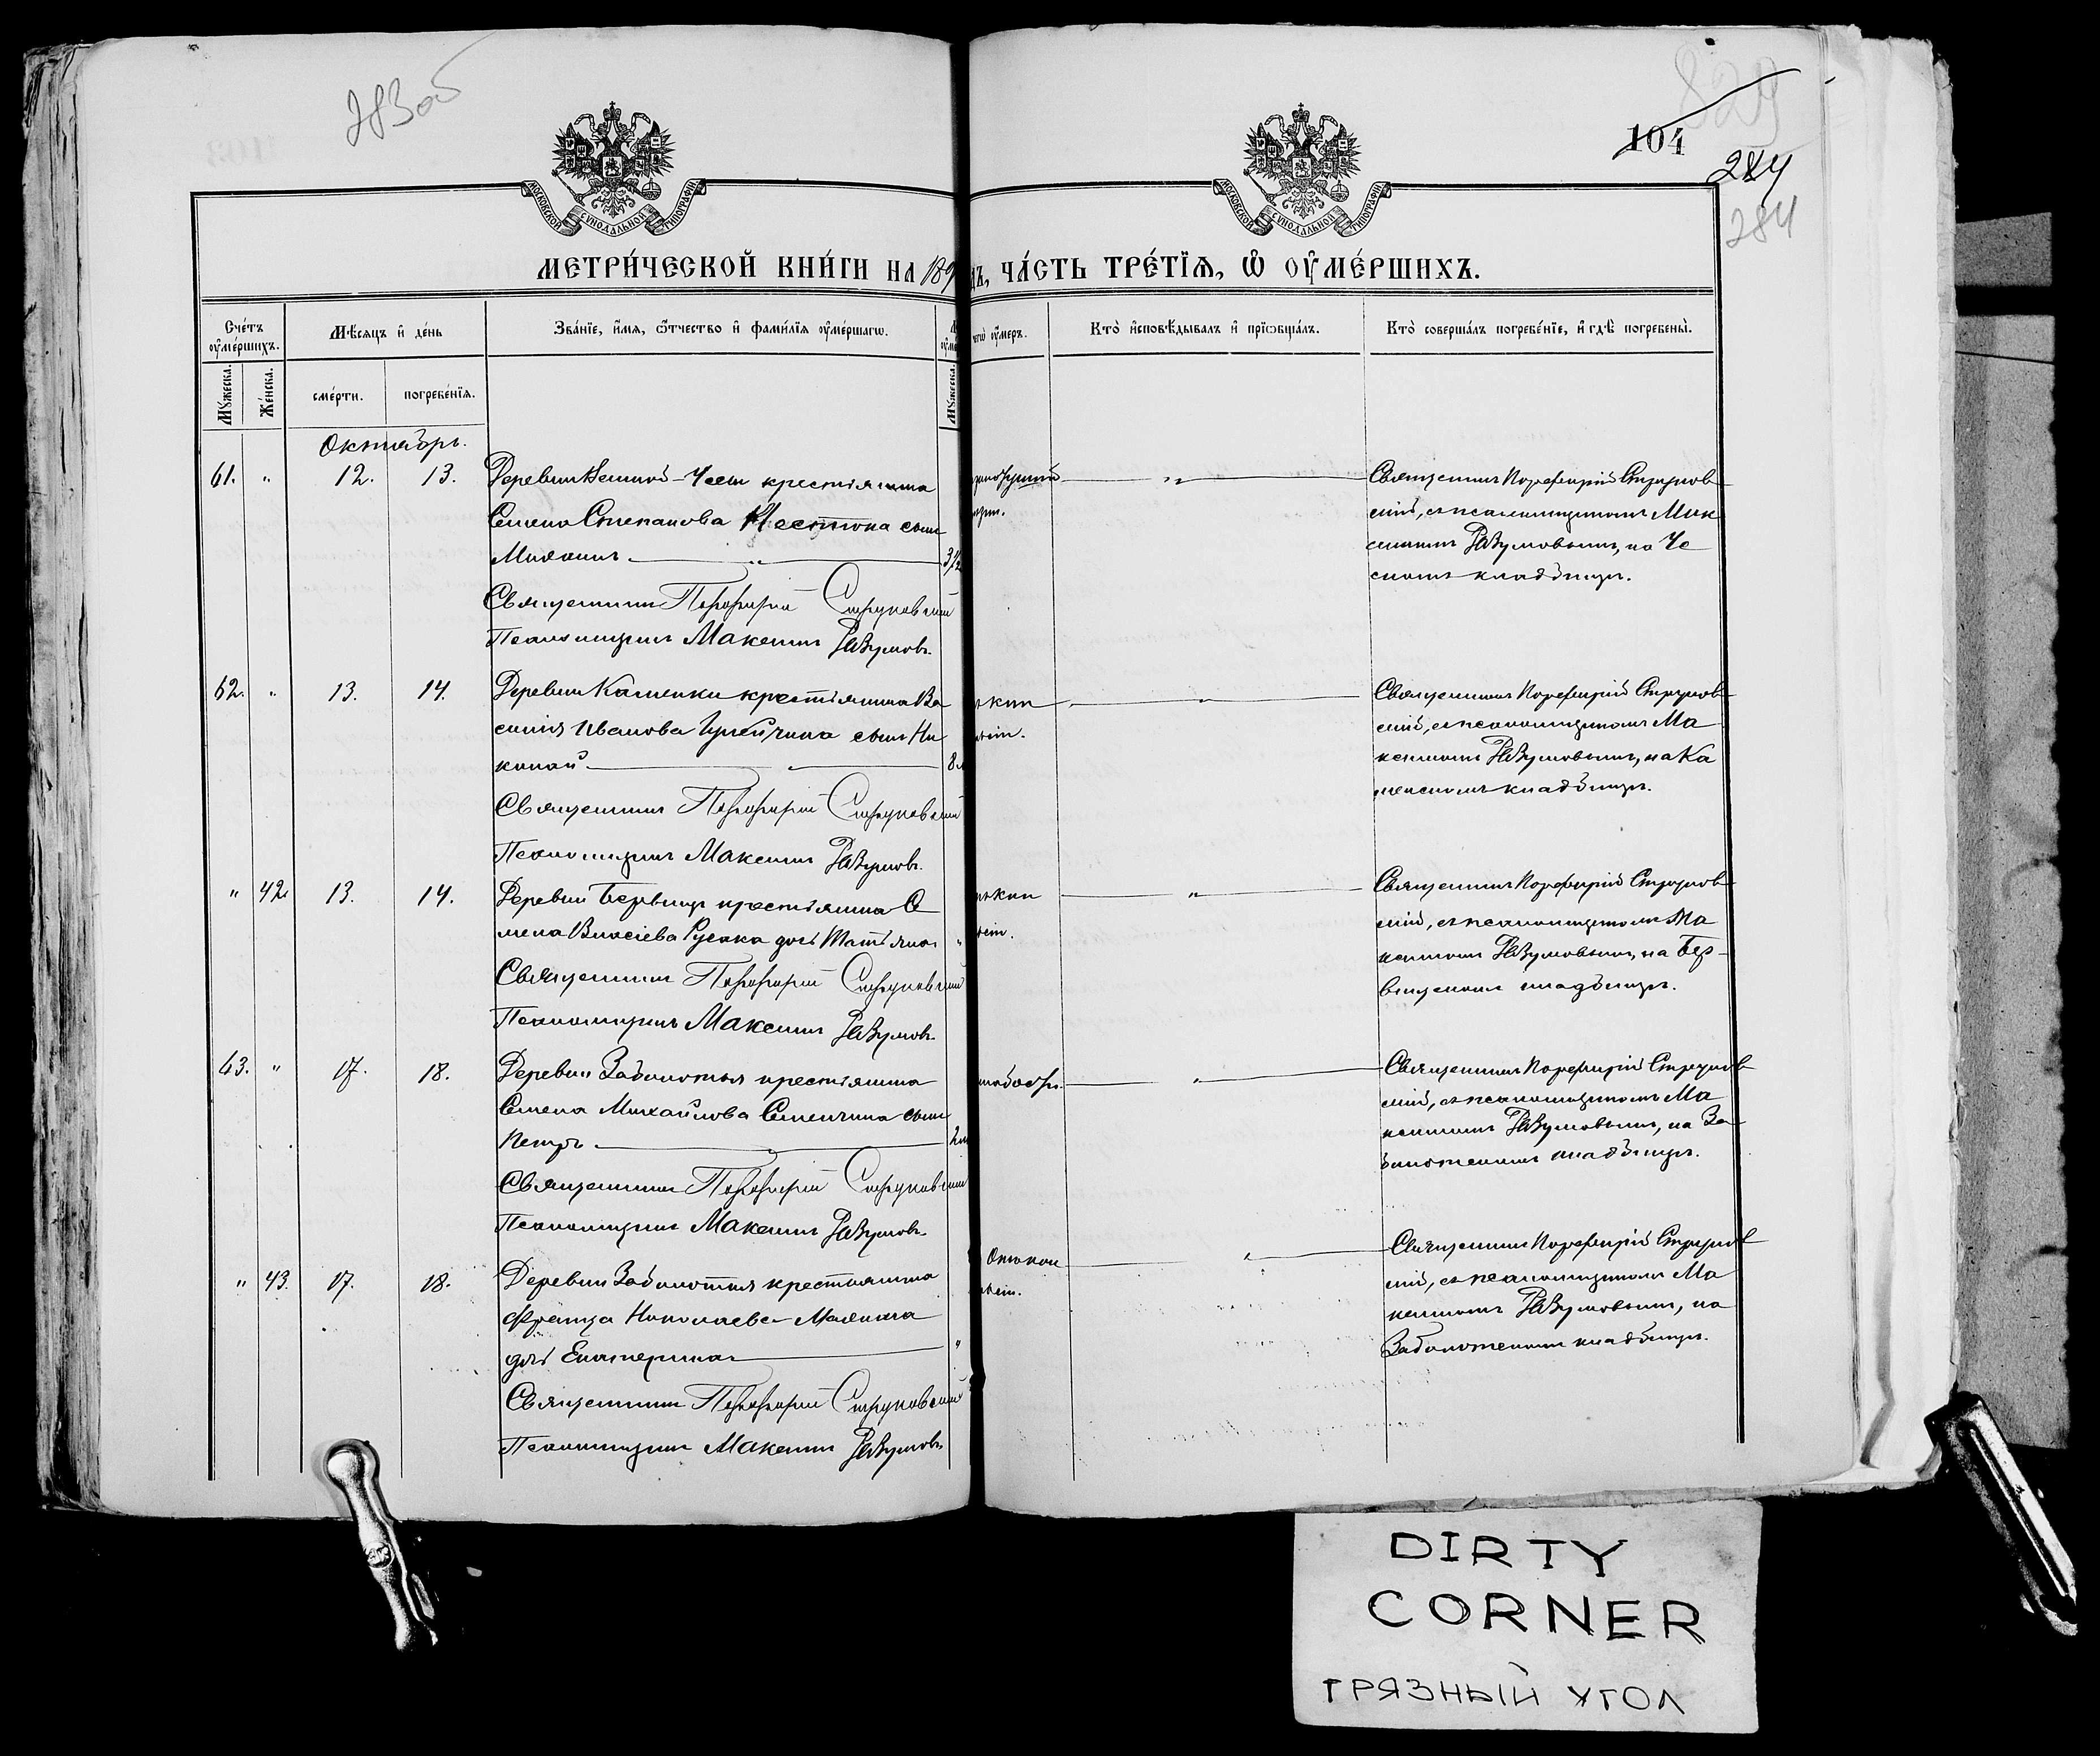 283об
МОСКОВСКОЙ СУНОДАЛЬНОЙ ТИПОГРАФІИ
МОСКОВСКОЙ СУНОДАЛЬНОЙ ТИПОГРАФІИ
104
284
284
МЕТРИ́ЧЕСКОЙ КНИ́ГИ НА 189
ДЪ, ЧА́СТЬ ТРЕ́ТІЯ, Ѽ ОУ҆МЕ́РШИХЪ.
Сче́тъ оу҆ме́ршихъ.
Мѣ́сяцъ и҆ де́нь
Зва́нїе, и҆́мя, ѻ҆́тчество и҆ фами́лїя оу҆ме́ршагѡ.
оу҆́меръ.
Кто̀ и҆сповѣ́дывалъ и҆ прїѡбща́лъ.
Кто̀ соверша́лъ погребе́нїе, и҆ гдѣ̀ погребены̀.
Мꙋ́жеска.
Же́нска.
сме́рти.
погребе́нїя.
Мꙋ́жеска.
Октябрь.
61. " 12. 13. Деревни крестьянина
Семена Степанова сынъ
Михаилъ 3½
Священникъ Порфирій Струковскій
Псаломщикъ Максимъ Разумовъ.
Священникъ Порфирій Струков
скій, съ псаломщикомъ Мак
симомъ Разумовымъ, на Че
скомъ кладбищѣ.
62. " 13. 14. Деревни Каменки крестьянина Ва
силія Иванова сынъ Ни
колай 8
Священникъ Порфирій Струковскій
Псаломщикъ Максимъ Разумовъ.
Священникъ Порфирій Струков
скій, съ псаломщикомъ Ма
ксимомъ Разумовымъ, на Ка
менскомъ кладбищѣ.
" 42. 13. 14. Деревни Бервищъ крестьянина Се
мена Власіева Русака дочь Татьяна "
Священникъ Порфирій Струковскій
Псаломщикъ Максимъ Разумовъ.
Священникъ Порфирій Струков
скій, съ псаломщикомъ Ма
ксимомъ Разумовымъ, на Бер
вищскомъ кладбищѣ.
63. " 17. 18. Деревни Заболотья крестьянина
Семена Михайлова Семенчика сынъ
Петръ 2
Священникъ Порфирій Струковскій
Псаломщикъ Максимъ Разумовъ.
Священникъ Порфирій Струков
скій, съ псаломщикомъ Ма
ксимомъ Разумовымъ, на За
болотскомъ кладбищѣ.
" 43. 17. 18. Деревни Заболотья крестьянина
Франца Николаева
дочь Екатерина "
Священникъ Порфирій Струковскій
Псаломщикъ Максимъ Разумовъ
Священникъ Порфирій Струков
скій, съ псаломщикомъ Ма
ксимомъ Разумовымъ, на
Заболотскомъ кладбищѣ.
DIRTY
CORNER
ГРЯЗНЫЙ УГОЛ